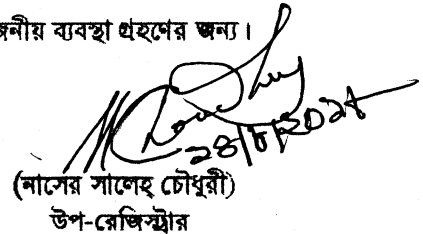 জনীয় ব্যবস্থা গ্রহণের জন্য।
(নাসের সালেহ্ চৌধুরী)
উপ-রেজিস্ট্রার